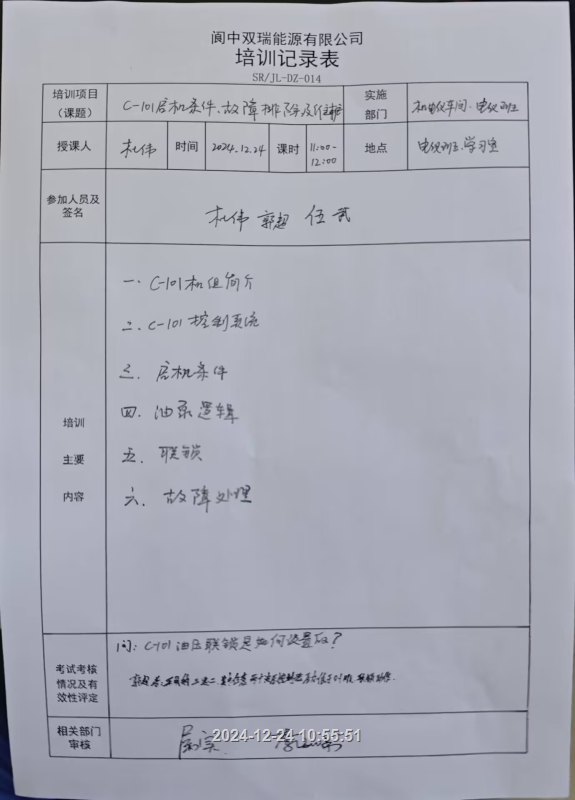 阆中双瑞能源有限公司
培训记录表
SR/JL-DZ-014
培训项目（课题） C-101启机条件、故障排除及维护 实施部门 机电仪车间·电仪班组
授课人 杜伟 时间 2024.12.24 课时 11:00-12:00 地点 电仪班组学习室
参加人员及签名 杜伟 郭超 伍武
培训主要内容
一. C-101机组简介
二. C-101控制系统
三. 启机条件
四. 油泵逻辑
五. 联锁
六. 故障处理
考试考核情况及有效性评定
问: C-101油压联锁是如何设置的？
郭超答:
相关部门审核
2024-12-24 10:55:51